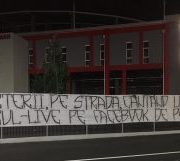 TERII, PE STRADA CAUTAND U
UL-LIVE PE FACEBOOK DE P